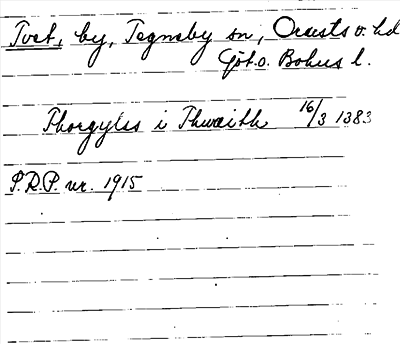 Tvet, by, Tegneby sn, Orousts v. hd
Göt.o. Bohus l.
Thorgylss i Thwaith 16/3 1383
S.R.P. nr. 1915